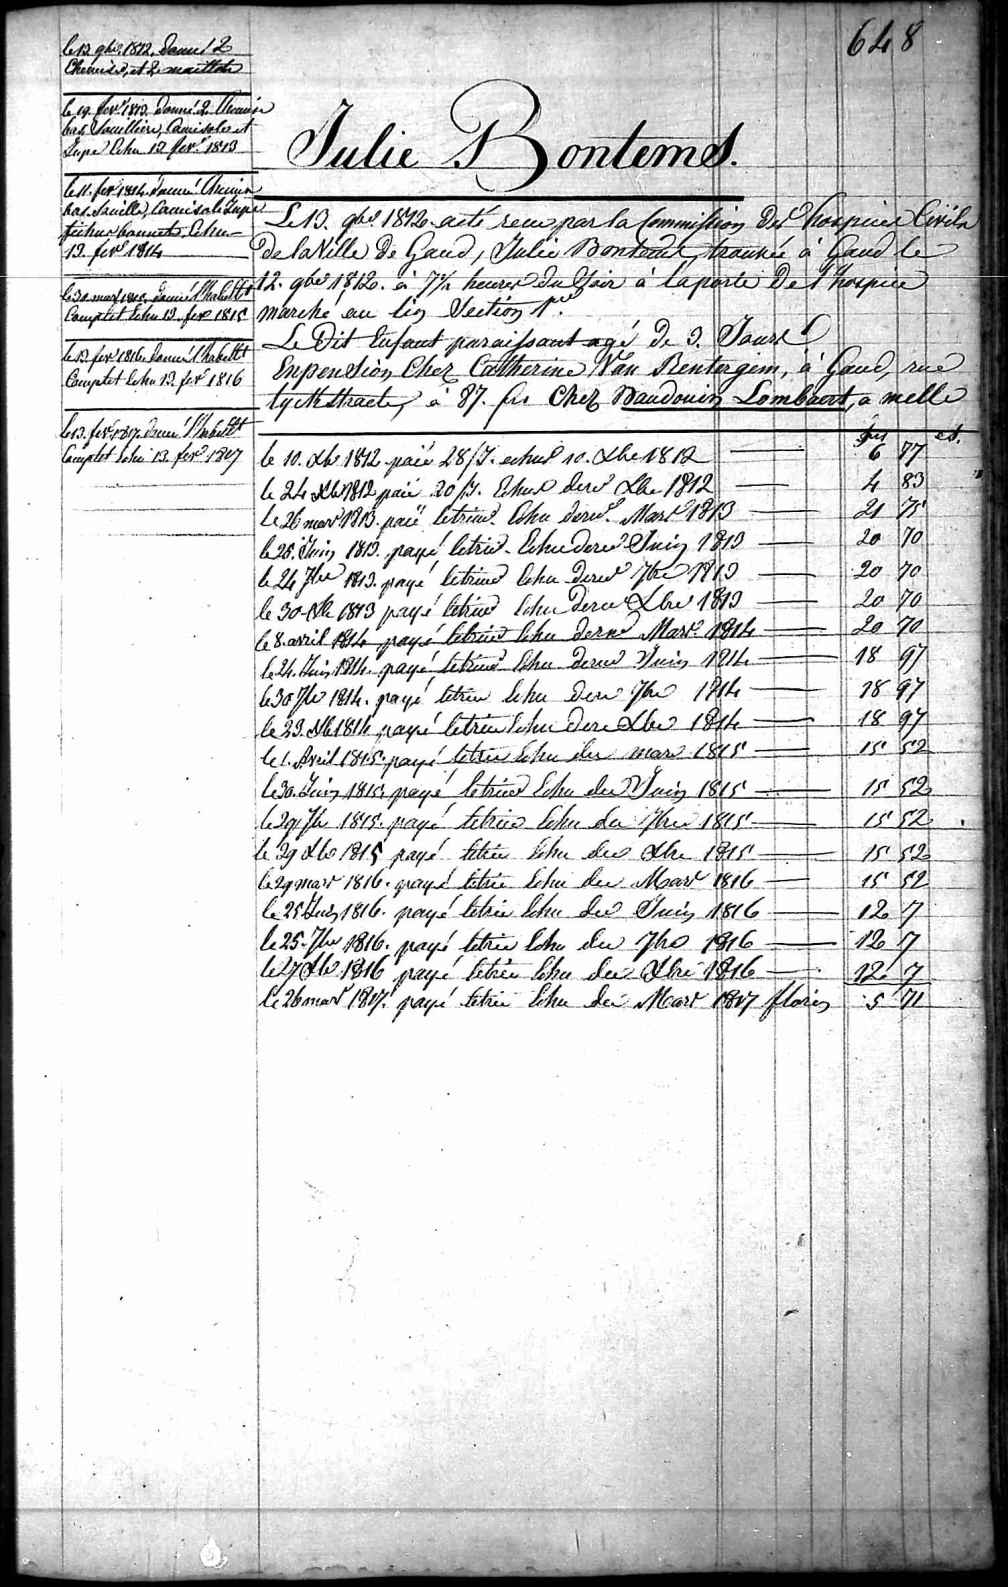 648
le 13 9bre 1812. donné 2
Chemises, et 2 maillots
le 19. fevr 1813. donné 2 Chemise
bas Souilliere, Camisole et
Jupe Echu 13 fevr 1813
le 11. fevr 1814 donné Chemise
bas. Souille, Camisole Jupe
fichu bonnets, Echu
13. fevr 1814
le 30 mars 1815, donné l'habillt
Complet Echu 13. fevr 1815
le 13 fevr 1816 donné l'habillt
Complet Echu 13 fevr 1816
le 13. fevr 1817 donné l'habillt
Complet Echu 13. fevr 1817
Julie Bontems.
Le 13. 9bre 1812 a été recu par la Commission Des hospices Civils
De la Ville De Gand, Julie Bontems, trouvée à Gand le
12. 9bre 1812. à 7½ heures du Soir à la porte De l'hospice
marché au lin Section 1re
Le Dit Enfant paraissant agé de 3. Jours
En pension Chez Catherine Van Rentergem, à Gand, rue
à 87. frs Chez Baudouin Lombaert, a melle
frs ct.
le 10. Xbre 1812 paié 28/J. echus 10. Xbre 1812 6 77
le 24 Xbre 1812 paié 20/J. Echus dere Xbre 1812 4 83
le 26 mars 1813. paié letrim. Echu dere. Mars 1813 21 75
le 25. Juin 1813. payé letrim. Echu dere Juin 1813 20 70
le 24 7bre 1813. payé letrim Echu dere 7bre 1813 20 70
le 30 Xbre 1813 payé letrim Echu dere Xbre 1813 20 70
le 8. avril 1814 payé letrim Echu dere Mars 1814 20 70
le 24. Juin 1814. payé letrim Echu dere Juin 1814 18 97
le 30 7bre 1814. payé letrim Echu dere 7bre 1814 18 97
le 23. Xbre 1814 payé letrim Echu dere Xbre 1814 18 97
le 1. Avril 1815. payé letrim Echu der mars 1815 15 52
le 30. Juin 1815, payé letrim Echu der Juin 1815 15 52
le 29 7bre 1815. payé letrim Echu der 7bre 1815 15 52
le 29 Xbre 1815 payé letrim Echu der Xbre 1815 15 52
le 29 mars 1816. payé letrim Echu der Mars 1816 15 52
le 25 Juin 1816. payé letrim Echu der Juin 1816 12 7
le 25. 7bre 1816. payé letrim Echu der 7bre 1816 12 7
le 27 Xbre 1816 payé letrim Echu der Xbre 1816 12 7
le 26 mars 1817. payé letrim Echu der Mars 1817 florins 5 71